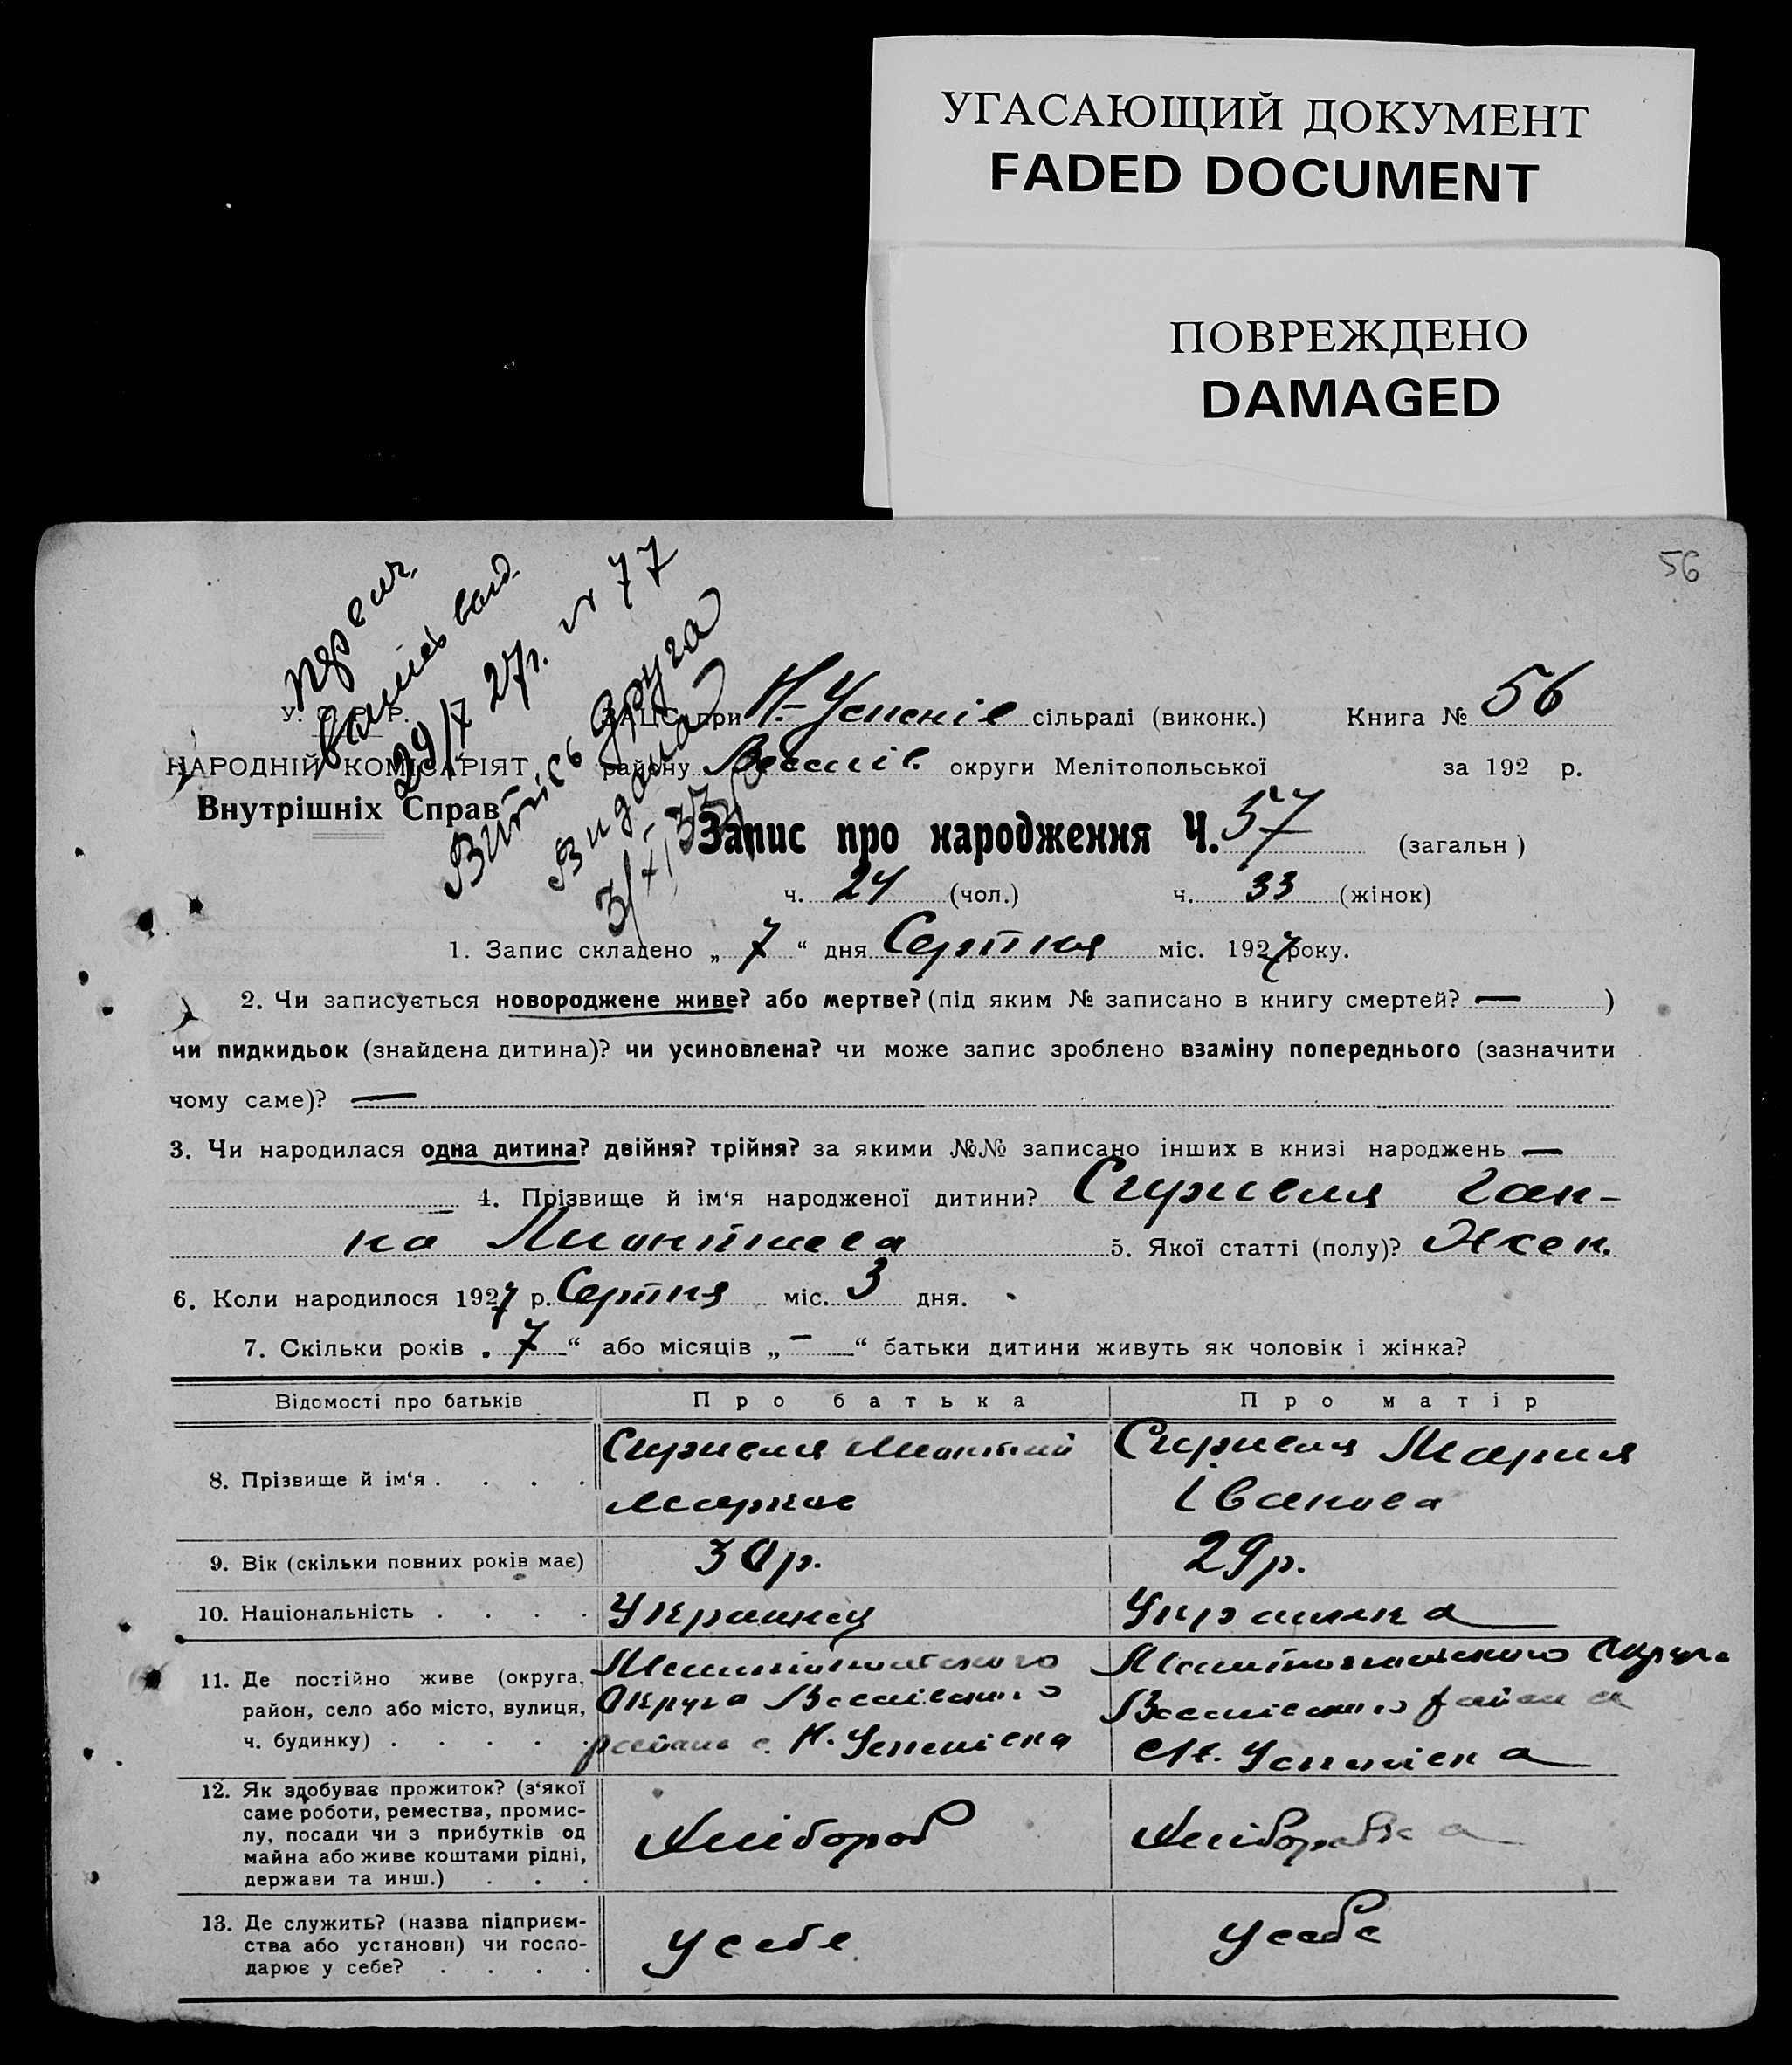 УГАСАЮЩИЙ ДОКУМЕНТ
FADED DOCUMENT
ПОВРЕЖДЕНО
DAMAGED
56
29/7 27р. № 77
Витпісь друга
Видана
У. С. Р. Р.
НАРОДНІЙ КОМІСАРІЯТ
Внутрішніх Справ
ЗАЦС при Н-Успенів сільраді (виконк.) Книга № 56
району Веселів. округи Мелітопольської за 192 р.
Запис про народження Ч. 57 (загальн)
ч. 24 (чол.) ч. 33 (жінок)
1. Запис складено „ 7 “ дня Серпня міс. 1927 року.
2. Чи записується новороджене живе? або мертве? (під яким № записано в книгу смертей? — )
чи пидкидьок (знайдена дитина)? чи усиновлена? чи може запис зроблено взаміну попереднього (зазначити
чому саме)? —
3. Чи народилася одна дитина? двійня? трійня? за якими №№ записано інших в книзі народжень —
4. Прізвище й ім‘я народженої дитини? Ган-
на 5. Якої статті (полу)? Жен.
6. Коли народилося 1927 р. Серпня міс. 3 дня.
7. Скільки років „ 7 “ або місяців „ — “ батьки дитини живуть як чоловік і жінка?
Відомості про батьків Про батька Про матір
8. Прізвище й ім‘я . . . . Мария
Іванова
9. Вік (скільки повних років має) 30р. 29р.
10. Національність . . . . Украинец Украинка
11. Де постійно живе (округа, Мелитопольского Мелитопольского Округа
район, село або місто, вулиця, Округа Веселівского Веселівского района
ч. будинку) . . . . . района с. Н. Успенівка с Н. Успенівка
12. Як здобуває прожиток? (з‘якої
саме роботи, ремества, промис-
лу, посади чи з прибутків од
майна або живе коштами рідні,
держави та инш.) . . . Хлібороб Хліборобка
13. Де служить? (назва підприєм-
ства або установи) чи госпо-
дарює у себе? . . . . У себе У себе